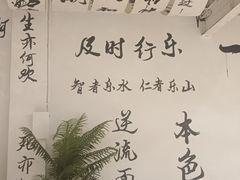 及时行乐
智者乐水 仁者乐山
生亦何欢
死亦
逆流而
本色
一